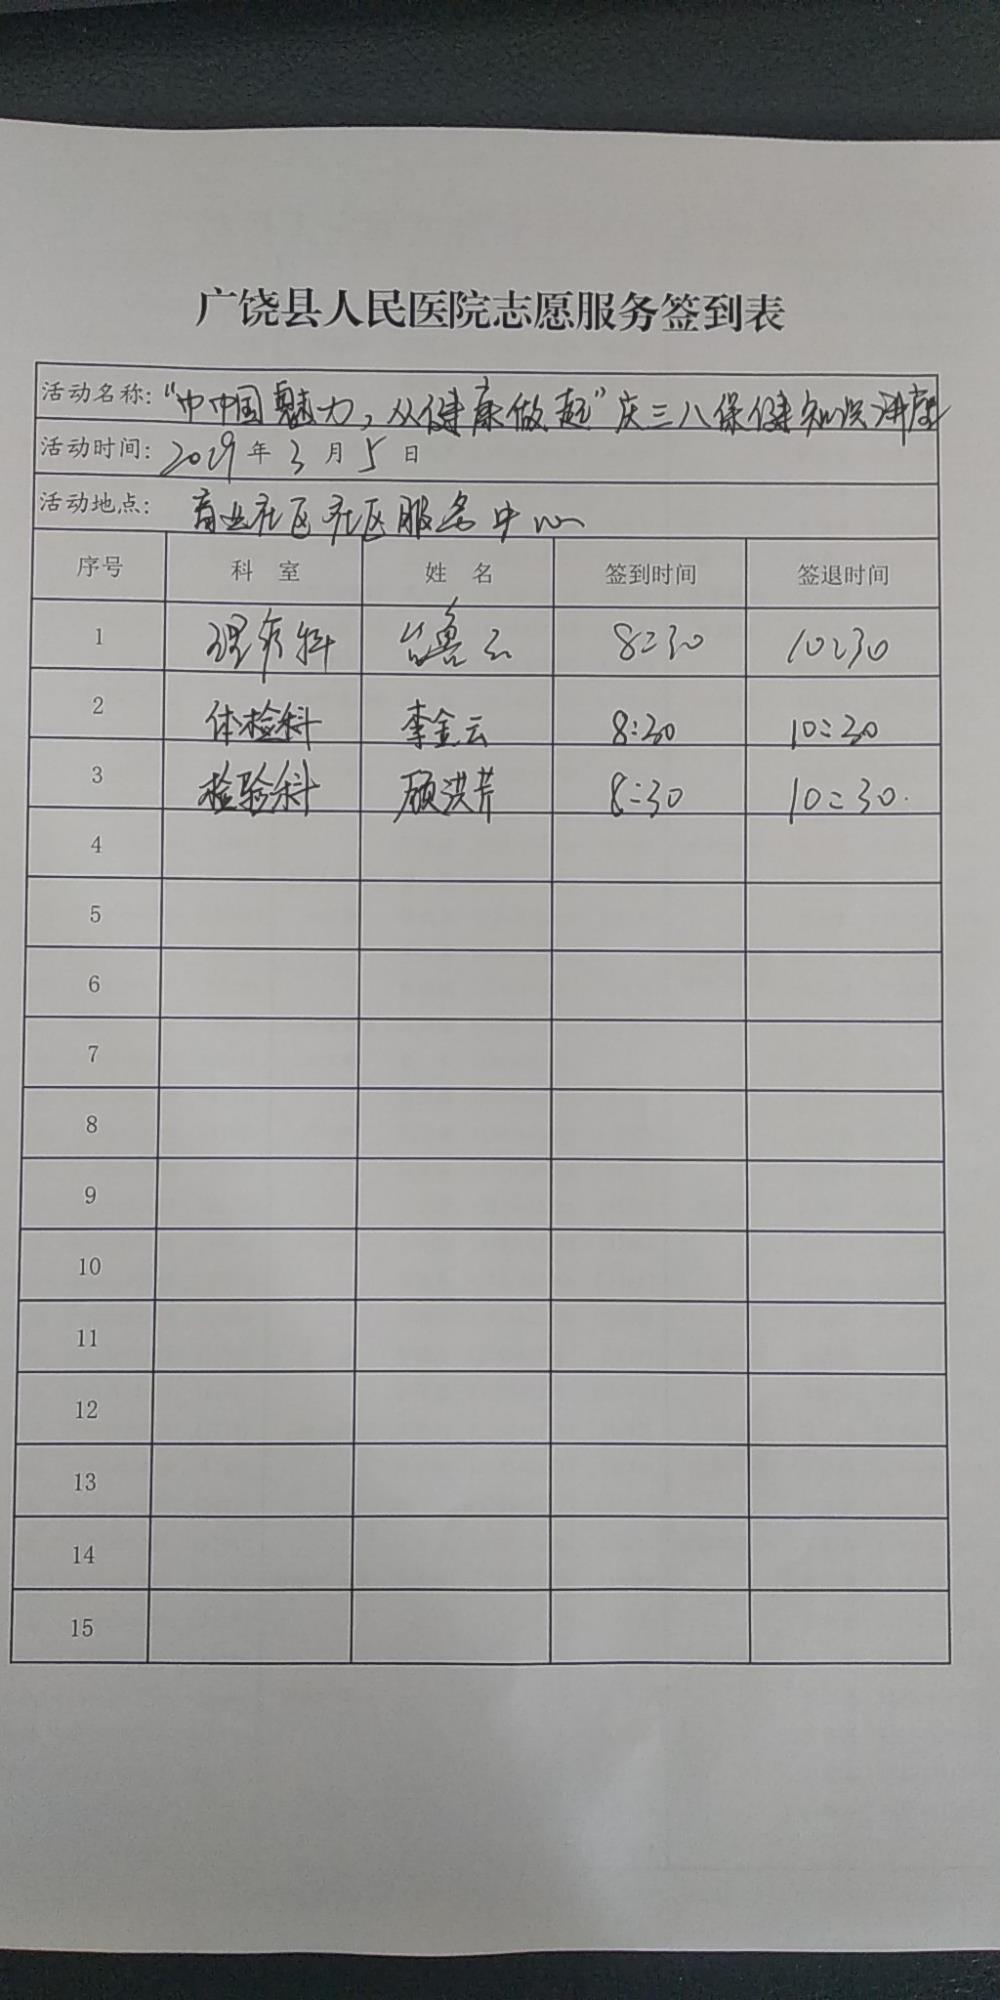 广饶县人民医院志愿服务签到表
活动名称：“巾帼魅力，从健康做起”庆三八保健知识讲座
活动时间：2019年3月5日
活动地点：乐社区社区服务中心
序号 科室 姓名 签到时间 签退时间
1 理疗科 云 8:30 10:30
2 体检科 李金云 8:30 10:30
3 检验科 顾洪芹 8:30 10:30
4
5
6
7
8
9
10
11
12
13
14
15